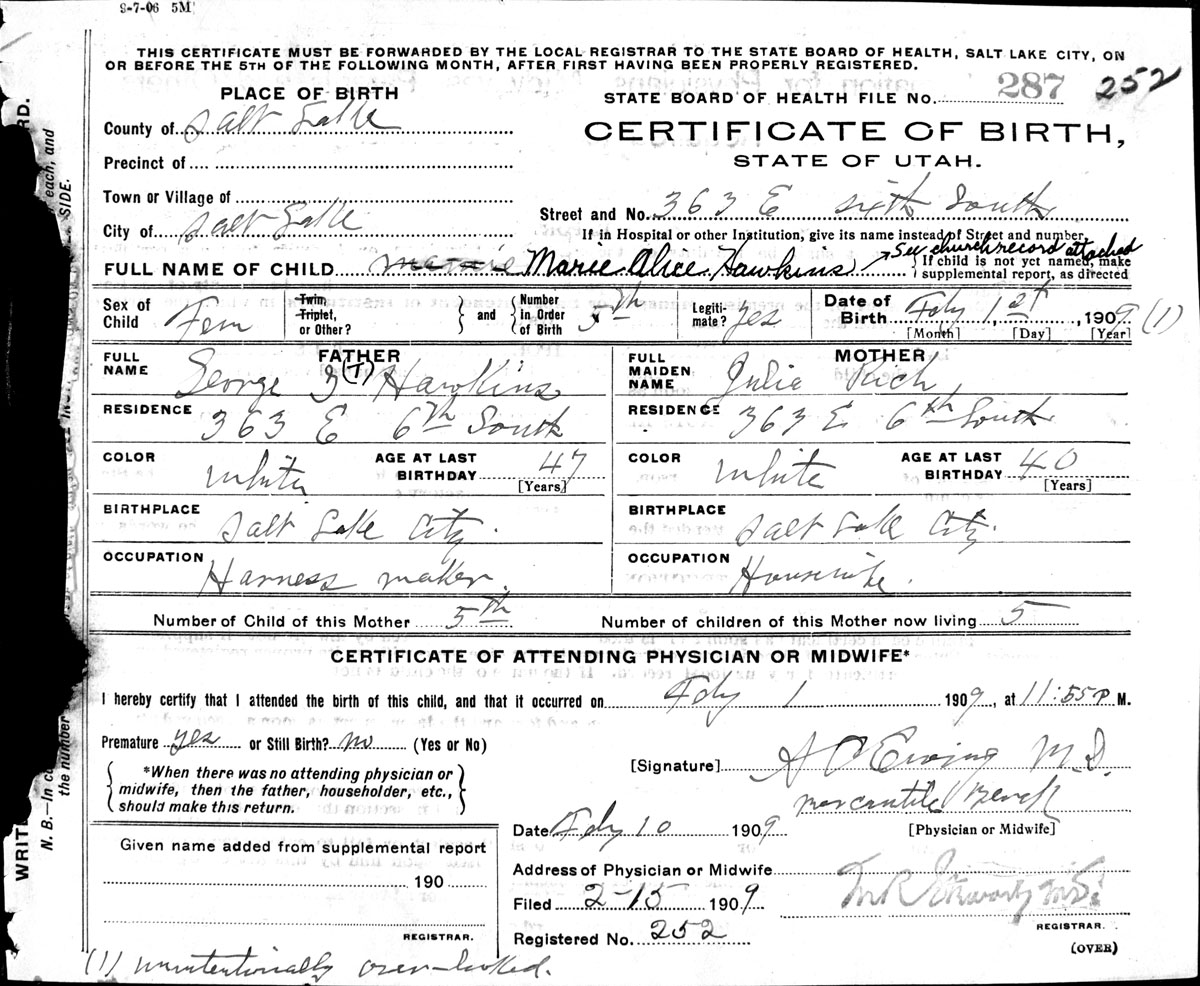 9-7-06 5M
THIS CERTIFICATE MUST BE FORWARDED BY THE LOCAL REGISTRAR TO THE STATE BOARD OF HEALTH, SALT LAKE CITY, ON
OR BEFORE THE 5TH OF THE FOLLOWING MONTH, AFTER FIRST HAVING BEEN PROPERLY REGISTERED.
PLACE OF BIRTH
STATE BOARD OF HEALTH FILE No. 287 252
County of Salt Lake
CERTIFICATE OF BIRTH,
Precinct of
STATE OF UTAH.
Town or Village of
Street and No. 363 E Sixth South
City of Salt Lake
If in Hospital or other Institution, give its name instead of Street and number.
See church record attached
FULL NAME OF CHILD Marie Alice Hawkins
If child is not yet named, make
supplemental report, as directed
Sex of Child Fem
Twin, Triplet, or Other?
and
Number in Order of Birth 5th
Legitimate? Yes
Date of Birth Feby 1st, 1909 (1)
[Month] [Day] [Year]
FATHER
FULL NAME George (T) Hawkins
MOTHER
FULL MAIDEN NAME Julia Rich
RESIDENCE 363 E 6th South
RESIDENCE 363 E 6th South
COLOR White
AGE AT LAST BIRTHDAY 47 [Years]
COLOR White
AGE AT LAST BIRTHDAY 40 [Years]
BIRTHPLACE Salt Lake City.
BIRTHPLACE Salt Lake City.
OCCUPATION Harness maker.
OCCUPATION Housewife.
Number of Child of this Mother 5th
Number of children of this Mother now living 5
CERTIFICATE OF ATTENDING PHYSICIAN OR MIDWIFE*
I hereby certify that I attended the birth of this child, and that it occurred on Feby 1 1909, at 11:55 P M.
Premature yes or Still Birth? no (Yes or No)
*When there was no attending physician or
midwife, then the father, householder, etc.,
should make this return.
[Signature] A C Ewing M.D.
Mercantile Block
[Physician or Midwife]
Date Feby 10 1909
Given name added from supplemental report
190
REGISTRAR.
Address of Physician or Midwife
Filed 2-15 1909
Registered No. 252
REGISTRAR.
(OVER)
(1) unintentionally over-looked.
WRITE
N. B.—In
the number
each, and
SIDE.